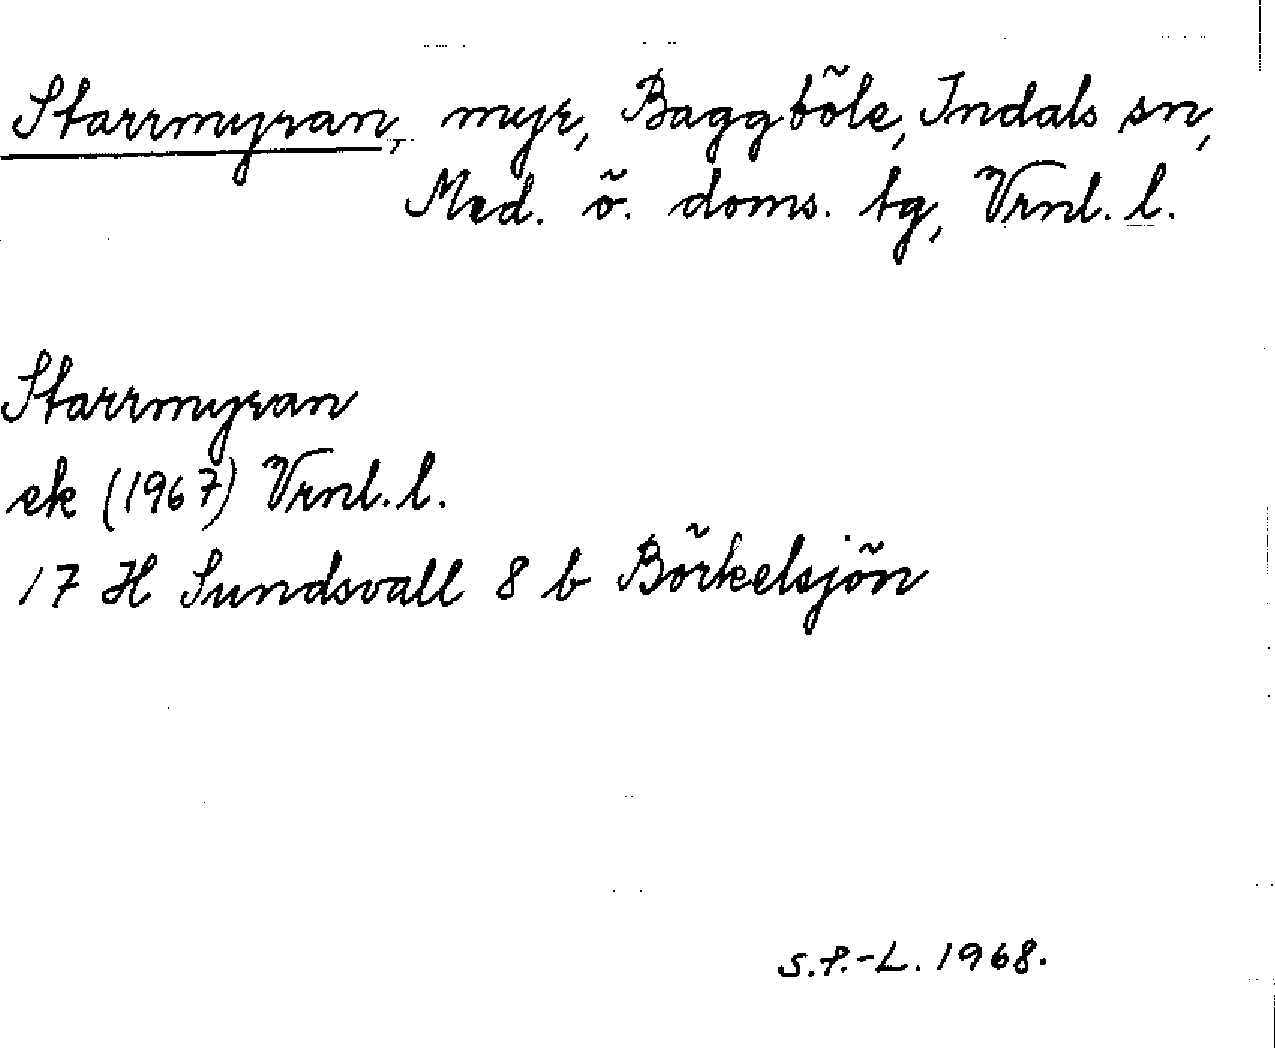 Starrmyran, myr, Baggböle, Indals sn,
Med. ö. doms. tg, Vrnl. l.
Starrmyran
ek (1967) Vrnl. l.
17 H Sundsvall 8 b Börkelsjön
S.P.-L. 1968.